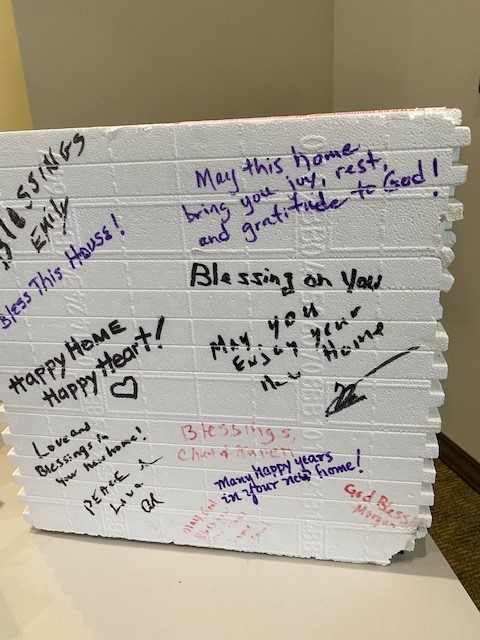 BLESSINGS
EMILY
Bless This House!
May this home
bring you joy, rest,
and gratitude to God!
Blessing on you
May you
Enjoy your
New Home
Happy HOME
Happy Heart!
Love and
Blessings in
your new home!
PEACE
Love
Blessings,
Many Happy years
in your new home!
God Bless
Morgan
May God
Bless